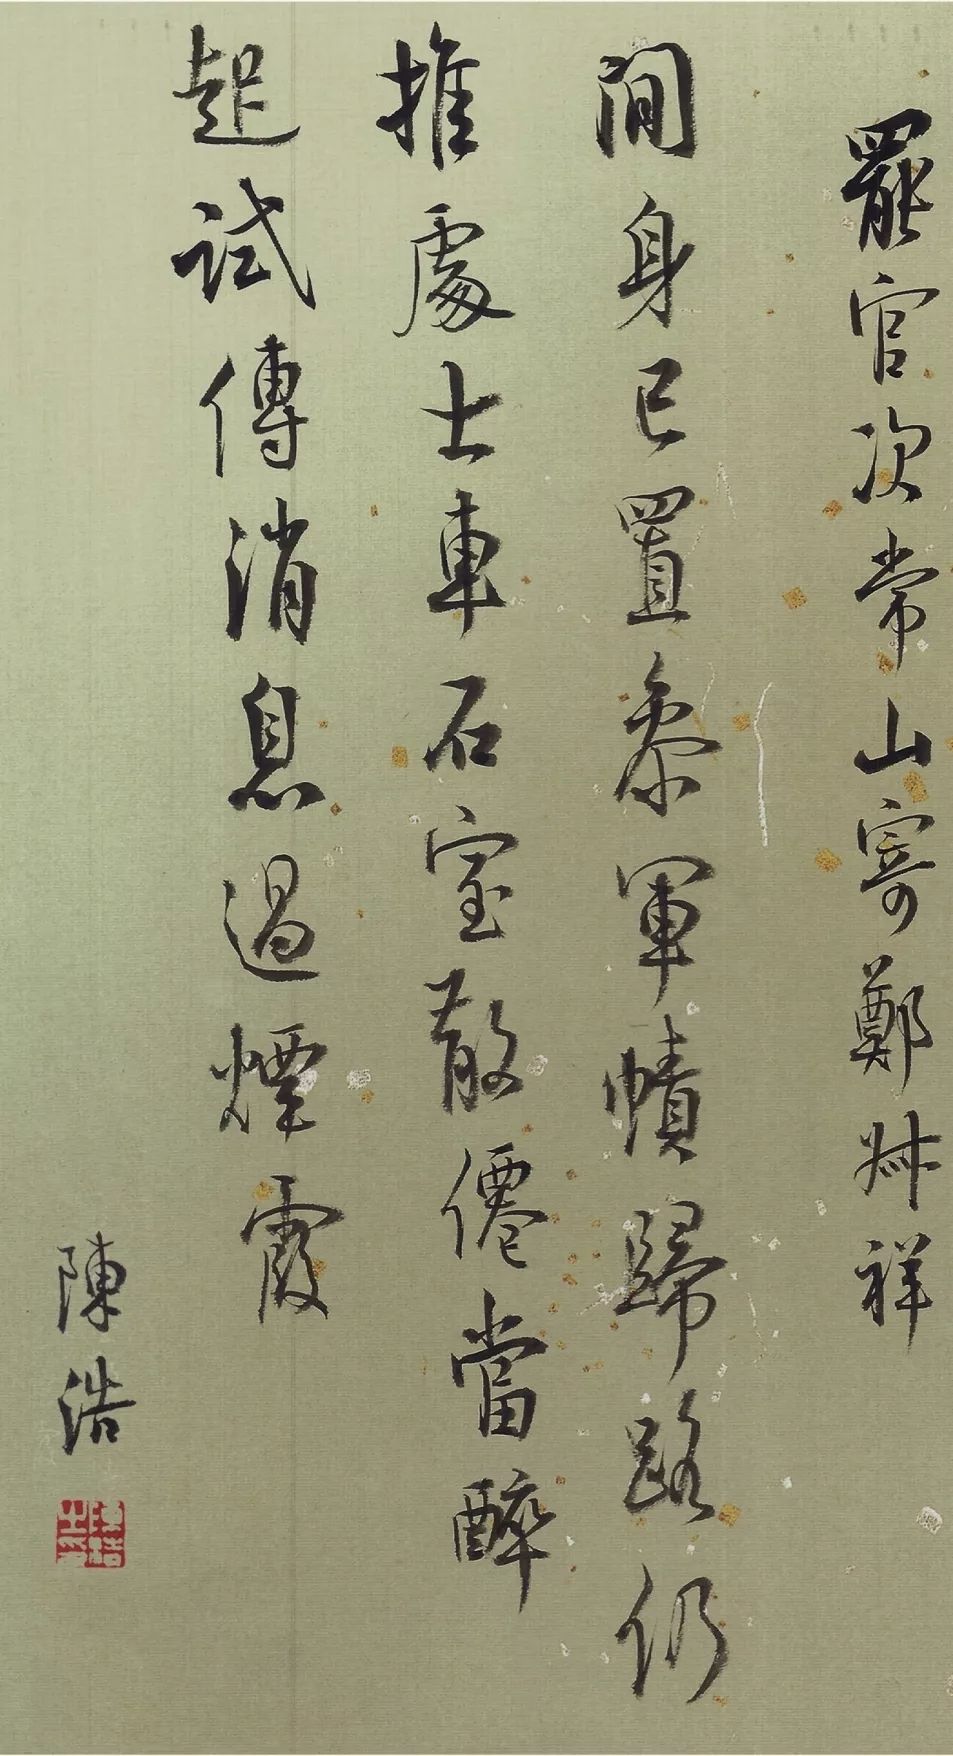 罷官次常山寄鄭叔祥
閒身已置參軍幘歸路仍
推處士車石室散僊當醉
起試傳消息過煙霞
陳浩